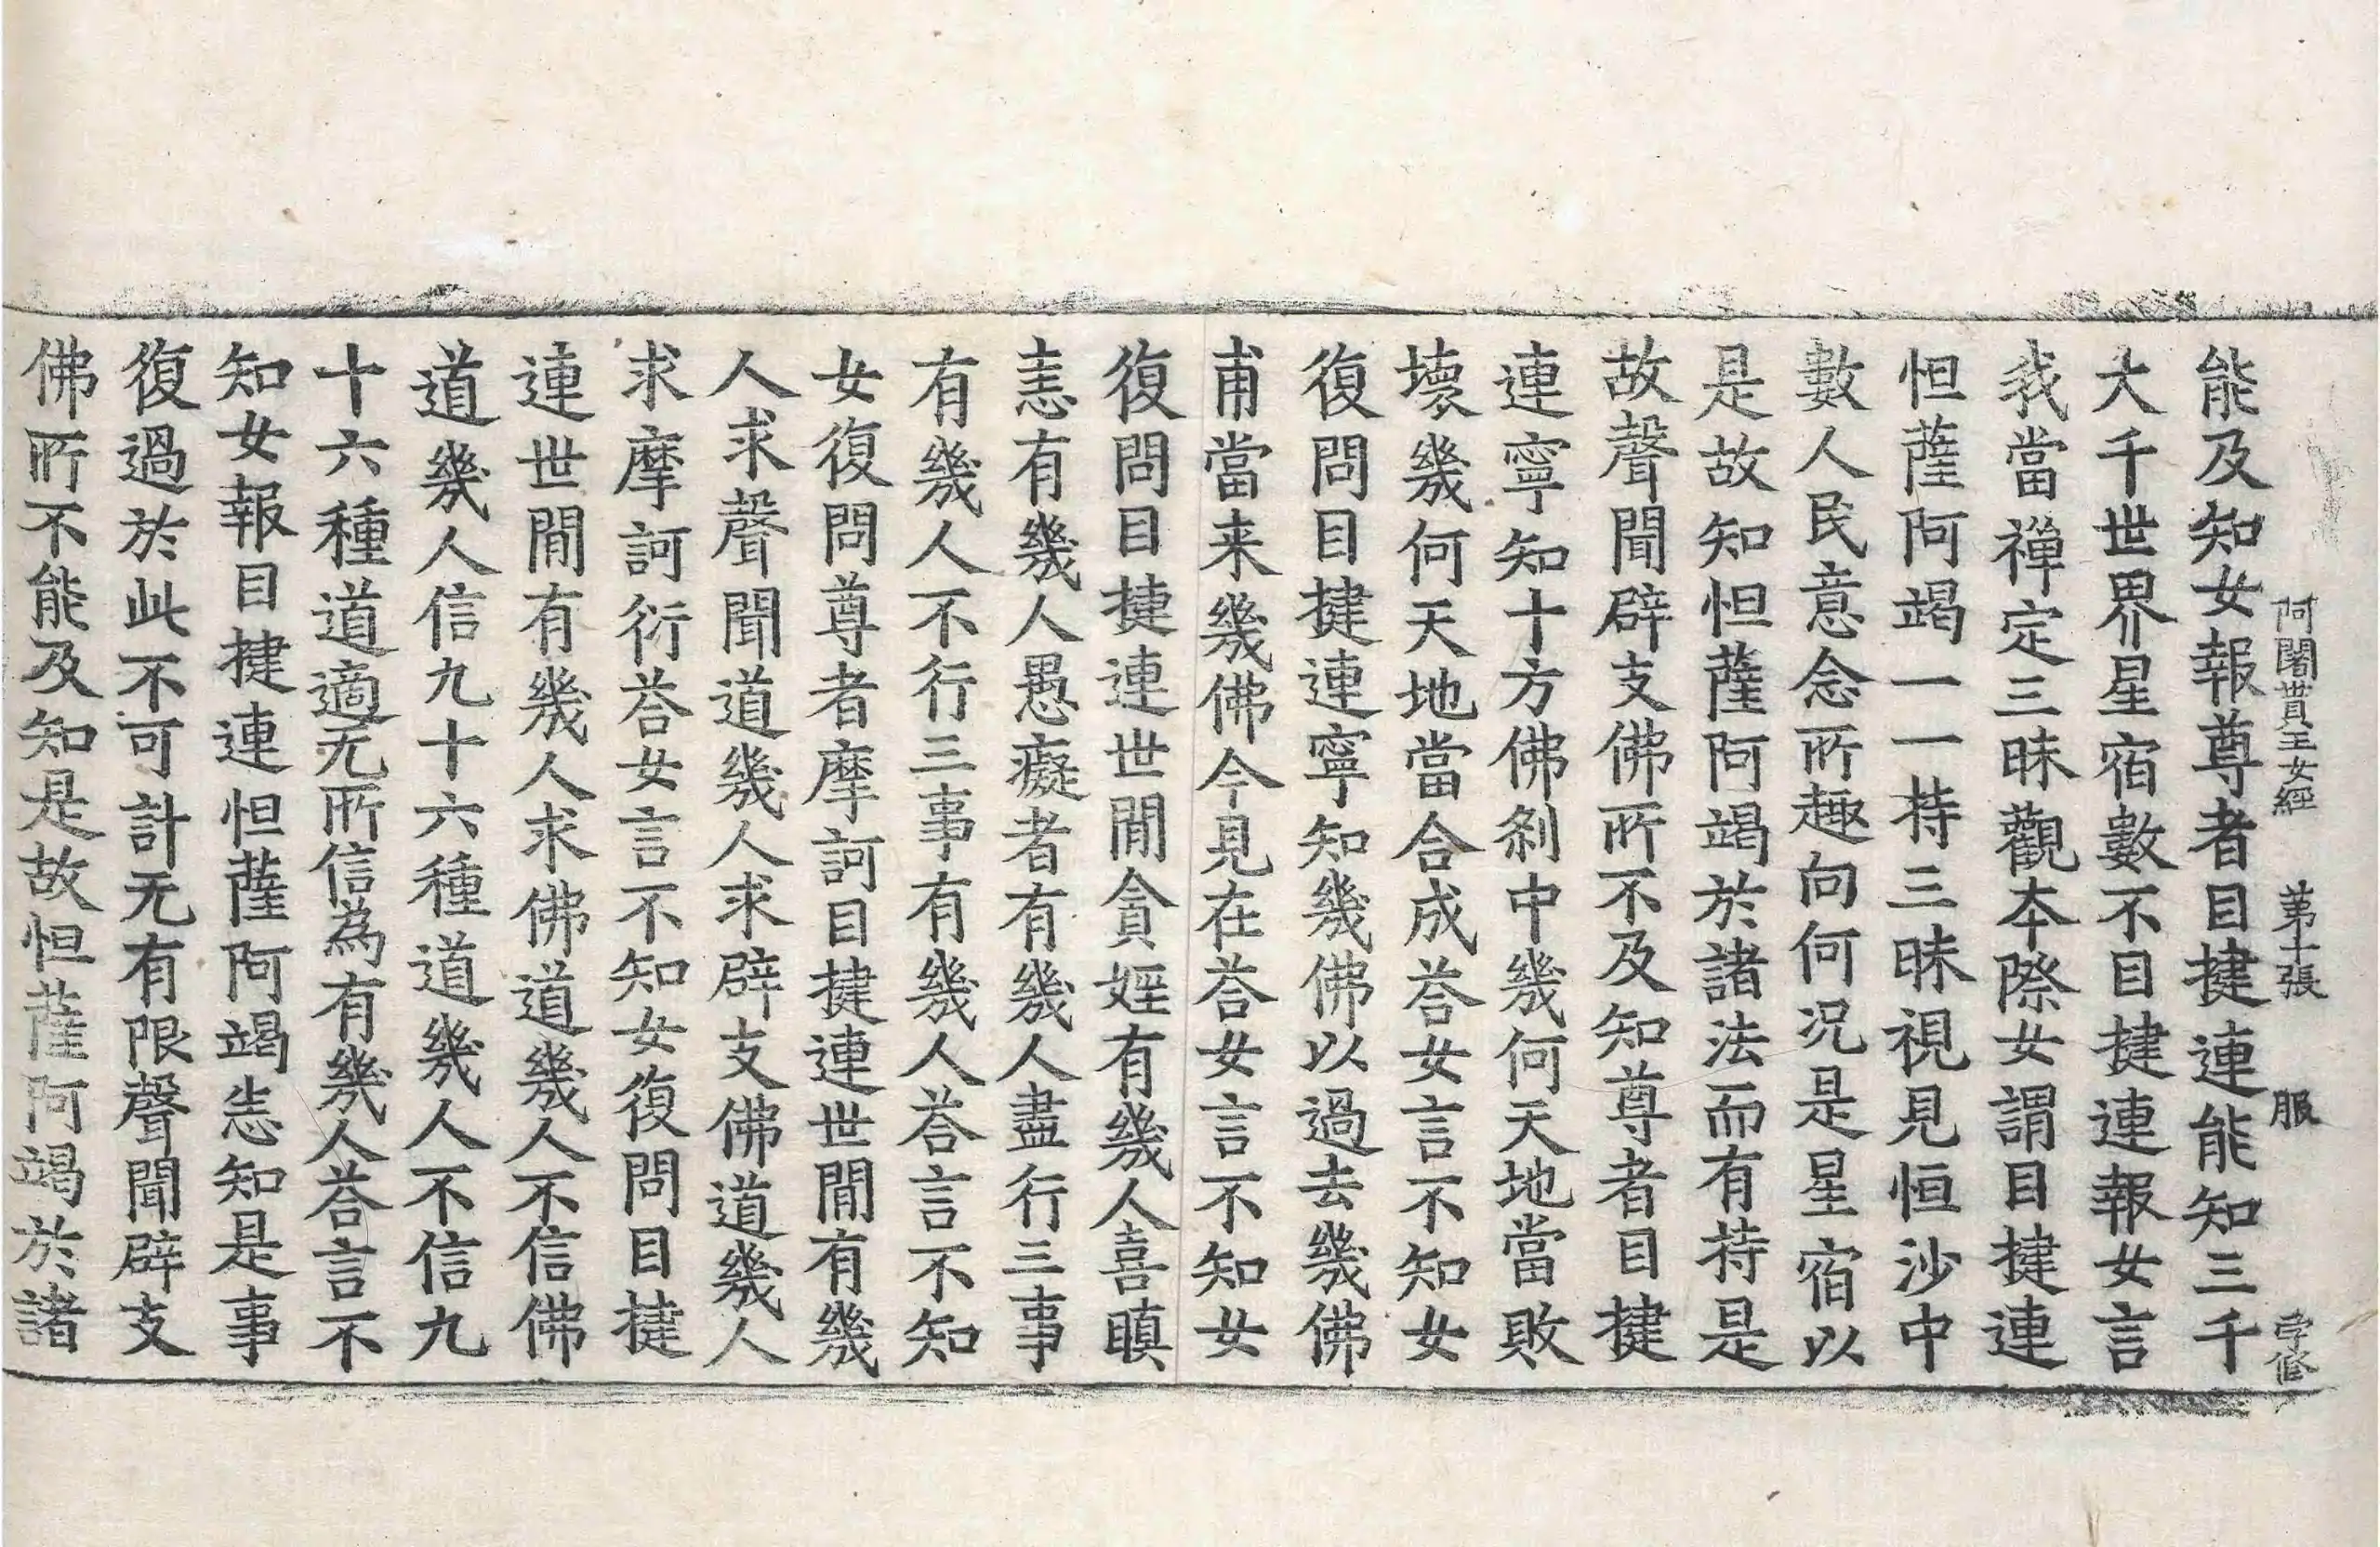 阿闍貰王女經 第十張 服
能及知女報尊者目揵連能知三千
大千世界星宿數不目揵連報女言
我當禪定三昧觀本際女謂目揵連
怛薩阿竭一一持三昧視見恒沙中
數人民意念所趣向何況是星宿以
是故知怛薩阿竭於諸法而有持是
故聲聞辟支佛所不及知尊者目揵
連寧知十方佛剎中幾何天地當敗
壞幾何天地當合成荅女言不知女
復問目揵連寧知幾佛以過去幾佛
甫當来幾佛今見在荅女言不知女
復問目揵連世閒貪婬有幾人喜瞋
恚有幾人愚癡者有幾人盡行三事
有幾人不行三事有幾人荅言不知
女復問尊者摩訶目揵連世閒有幾
人求聲聞道幾人求辟支佛道幾人
求摩訶衍荅女言不知女復問目揵
連世閒有幾人求佛道幾人不信佛
道幾人信九十六種道幾人不信九
十六種道適无所信為有幾人荅言不
知女報目揵連怛薩阿竭悉知是事
復過於此不可計无有限聲聞辟支
佛所不能及知是故怛薩阿竭於諸